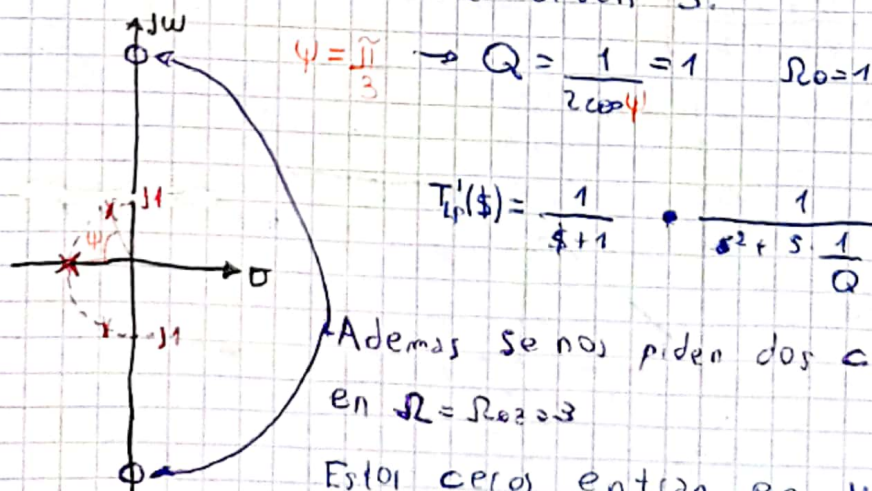 jω
ψ = π/3 → Q = 1/(2cosψ) = 1 Ω0=1
J1
ψ
T'Lp($) = 1/($+1) • 1/(s² + s · 1/Q
σ
J1
Ademas se nos piden dos c
en Ω = Ω0z = 3
Estos ceros entran en